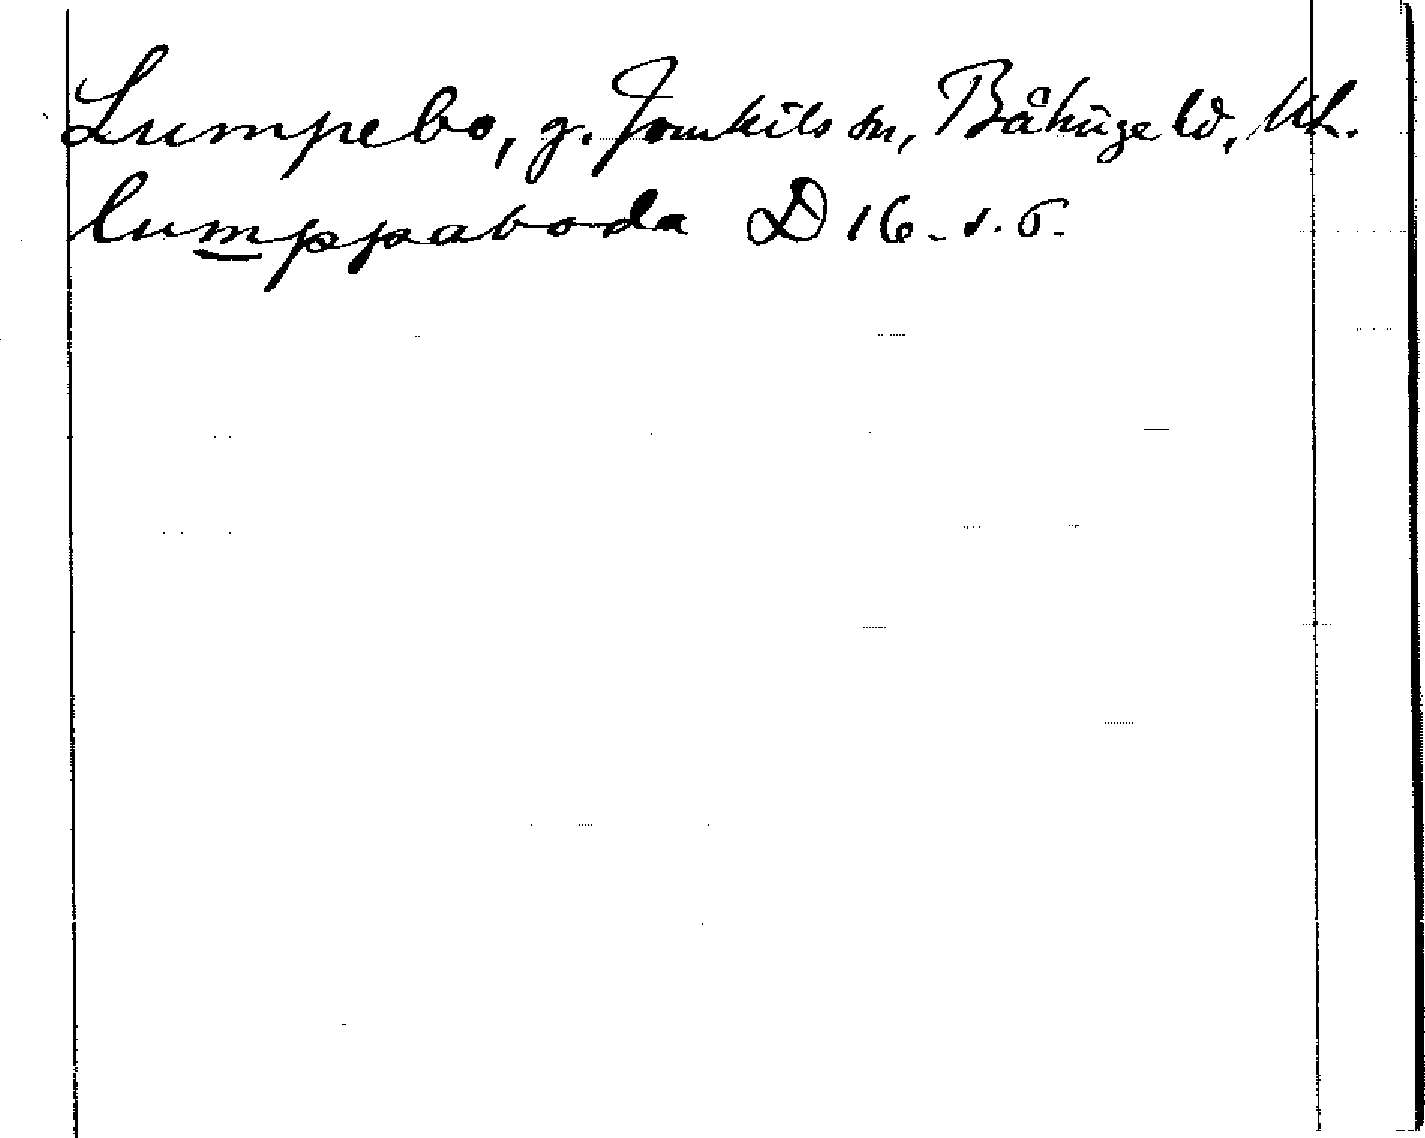 Lumpebo, g. Jonkils sn, Båhusgeld, Ul.
lumppaboda D 16. s. 6.